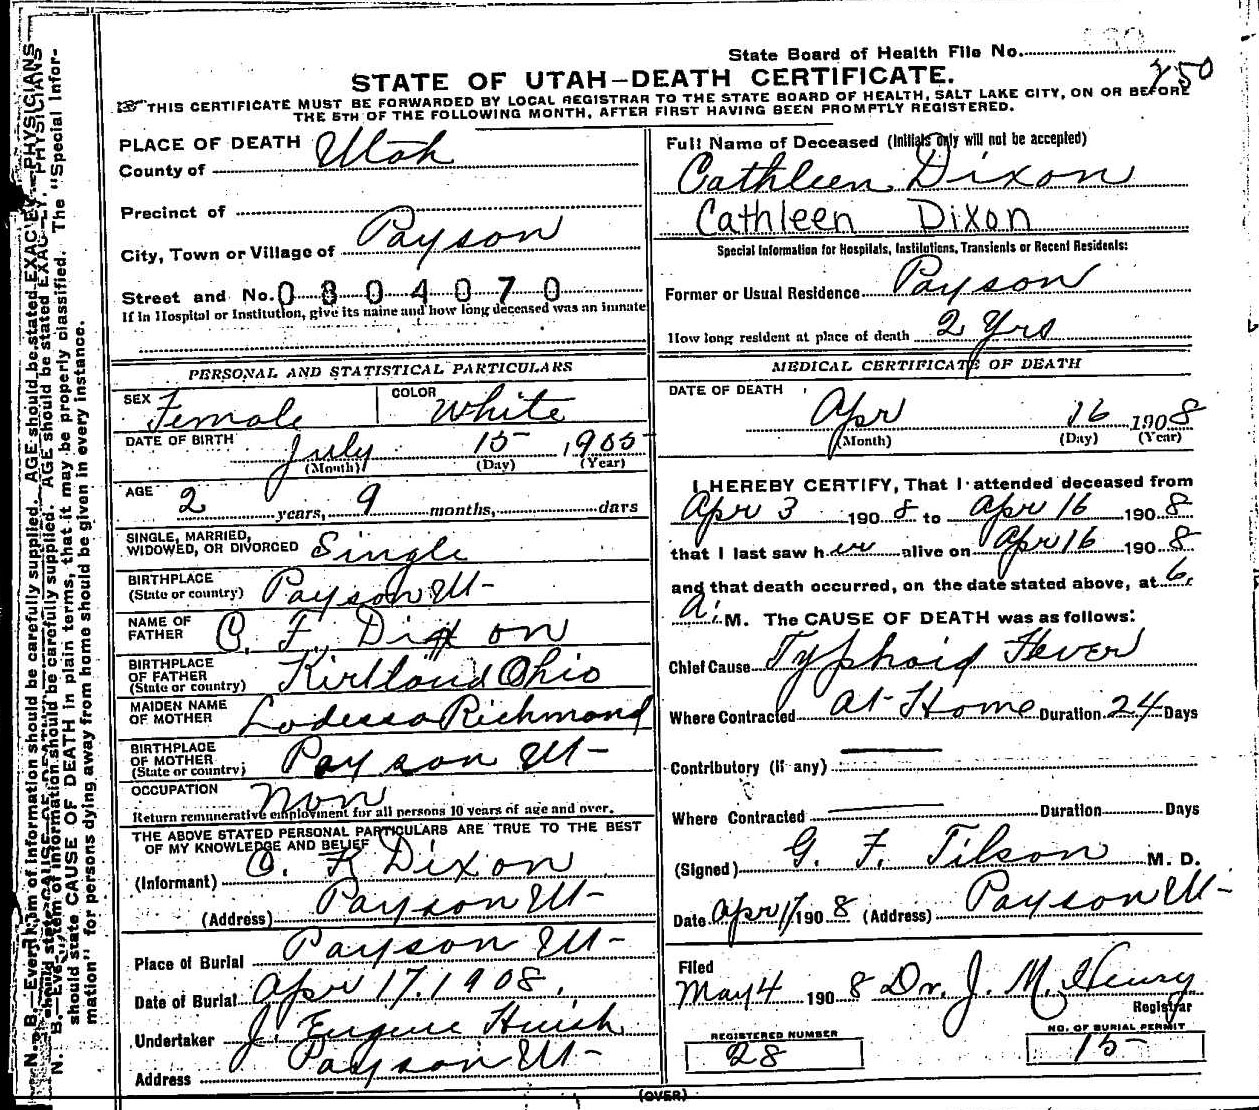 State Board of Health File No.
350
STATE OF UTAH—DEATH CERTIFICATE.
THIS CERTIFICATE MUST BE FORWARDED BY LOCAL REGISTRAR TO THE STATE BOARD OF HEALTH, SALT LAKE CITY, ON OR BEFORE
THE 5TH OF THE FOLLOWING MONTH, AFTER FIRST HAVING BEEN PROMPTLY REGISTERED.
PLACE OF DEATH
County of Utah
Precinct of
City, Town or Village of Payson
Street and No. 0804070
If in Hospital or Institution, give its name and how long deceased was an inmate
PERSONAL AND STATISTICAL PARTICULARS
SEX Female COLOR White
DATE OF BIRTH July 15 1905
(Month) (Day) (Year)
AGE 2 years, 9 months, days
SINGLE, MARRIED,
WIDOWED, OR DIVORCED Single
BIRTHPLACE
(State or country) Payson Ut
NAME OF
FATHER C. F. Dixon
BIRTHPLACE
OF FATHER
(State or country) Kirtland Ohio
MAIDEN NAME
OF MOTHER Lodessa Richmond
BIRTHPLACE
OF MOTHER
(State or country) Payson Ut
OCCUPATION non
Return remunerative employment for all persons 10 years of age and over.
THE ABOVE STATED PERSONAL PARTICULARS ARE TRUE TO THE BEST
OF MY KNOWLEDGE AND BELIEF
(Informant) Dixon
(Address) Payson Ut
Place of Burial Payson Ut
Date of Burial Apr 17. 1908.
Undertaker J. Eugene Huish
Address Payson Ut
Full Name of Deceased (Initials only will not be accepted)
Cathleen Dixon
Cathleen Dixon
Special Information for Hospitals, Institutions, Transients or Recent Residents:
Former or Usual Residence Payson
How long resident at place of death 2 Yrs
MEDICAL CERTIFICATE OF DEATH
DATE OF DEATH
Apr 16 1908
(Month) (Day) (Year)
I HEREBY CERTIFY, That I attended deceased from
Apr 3 1908 to Apr 16 1908
that I last saw her alive on Apr 16 1908
and that death occurred, on the date stated above, at 6.
A. M. The CAUSE OF DEATH was as follows:
Chief Cause Typhoid Fever
Where Contracted at Home Duration 24 Days
Contributory (if any)
Where Contracted Duration Days
(Signed) G. F. Tilson M. D.
Date Apr 17 1908 (Address) Payson Ut
Filed
May 4 1908 Dr. J. M. Henry
Registrar
REGISTERED NUMBER
28
NO. OF BURIAL PERMIT
15
(OVER)
N. B.—Every item of information should be carefully supplied. AGE should be stated EXACTLY. PHYSICIANS
should state CAUSE OF DEATH in plain terms, that it may be properly classified. The "Special Infor-
mation" for persons dying away from home should be given in every instance.